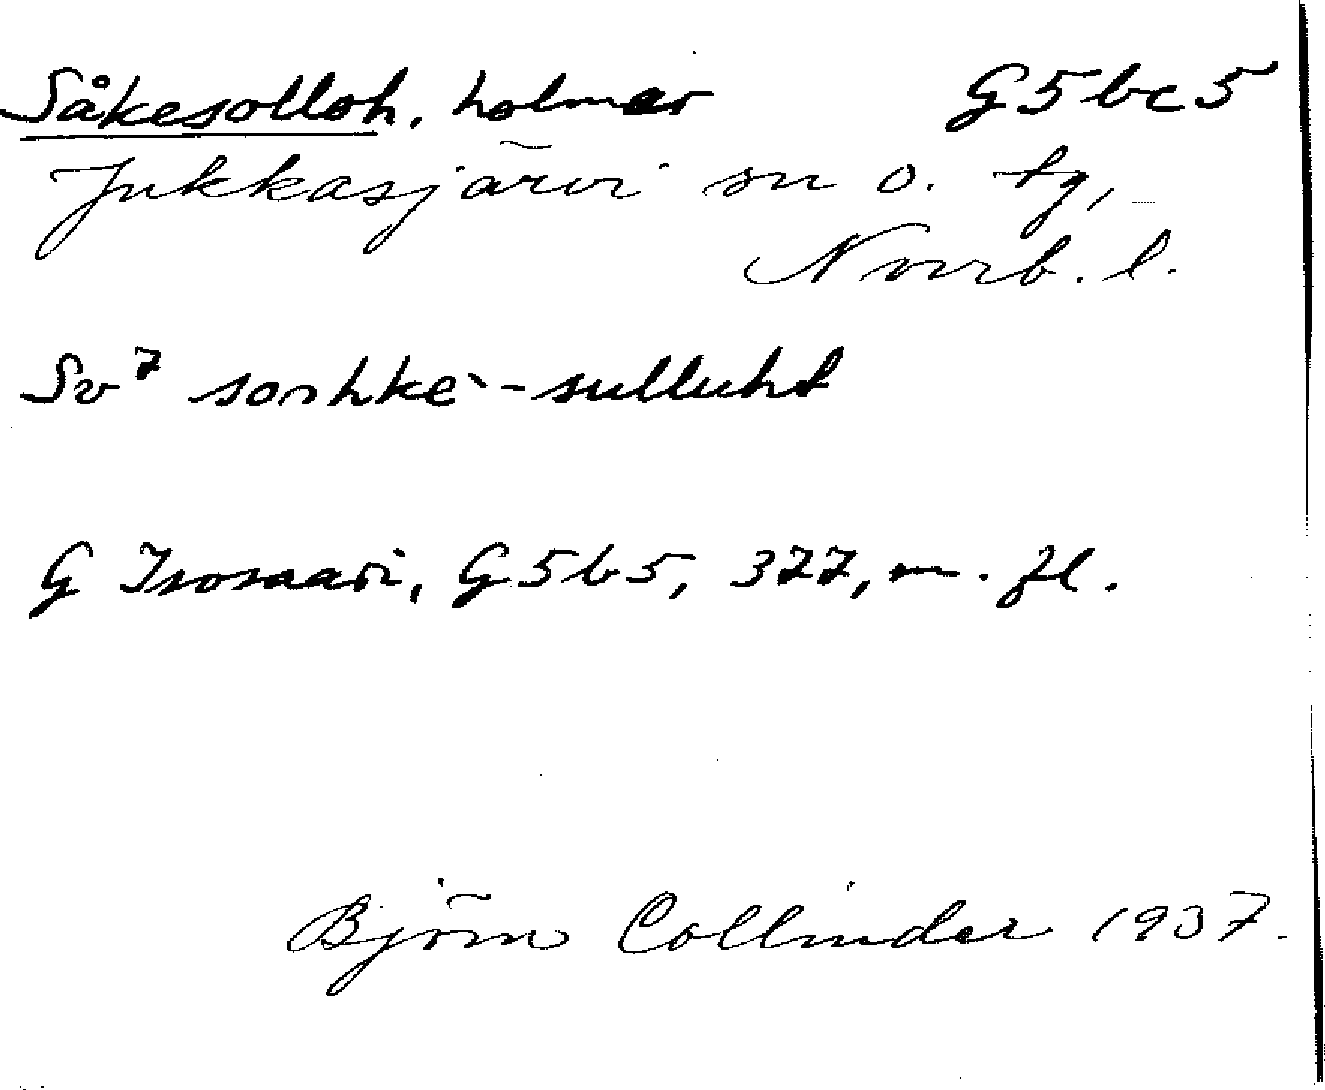 Såkesolloh, holmar G5bc5
Jukkasjärvi sn o. tg,
Norrb. l.
Sv⁷ soŋhkeˋ-sulluht
G Isosaari, G5b5, 377, m. fl.
Björn Collinder 1937.